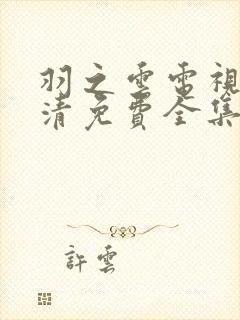 羽之雲電視
清免費全集
許雲